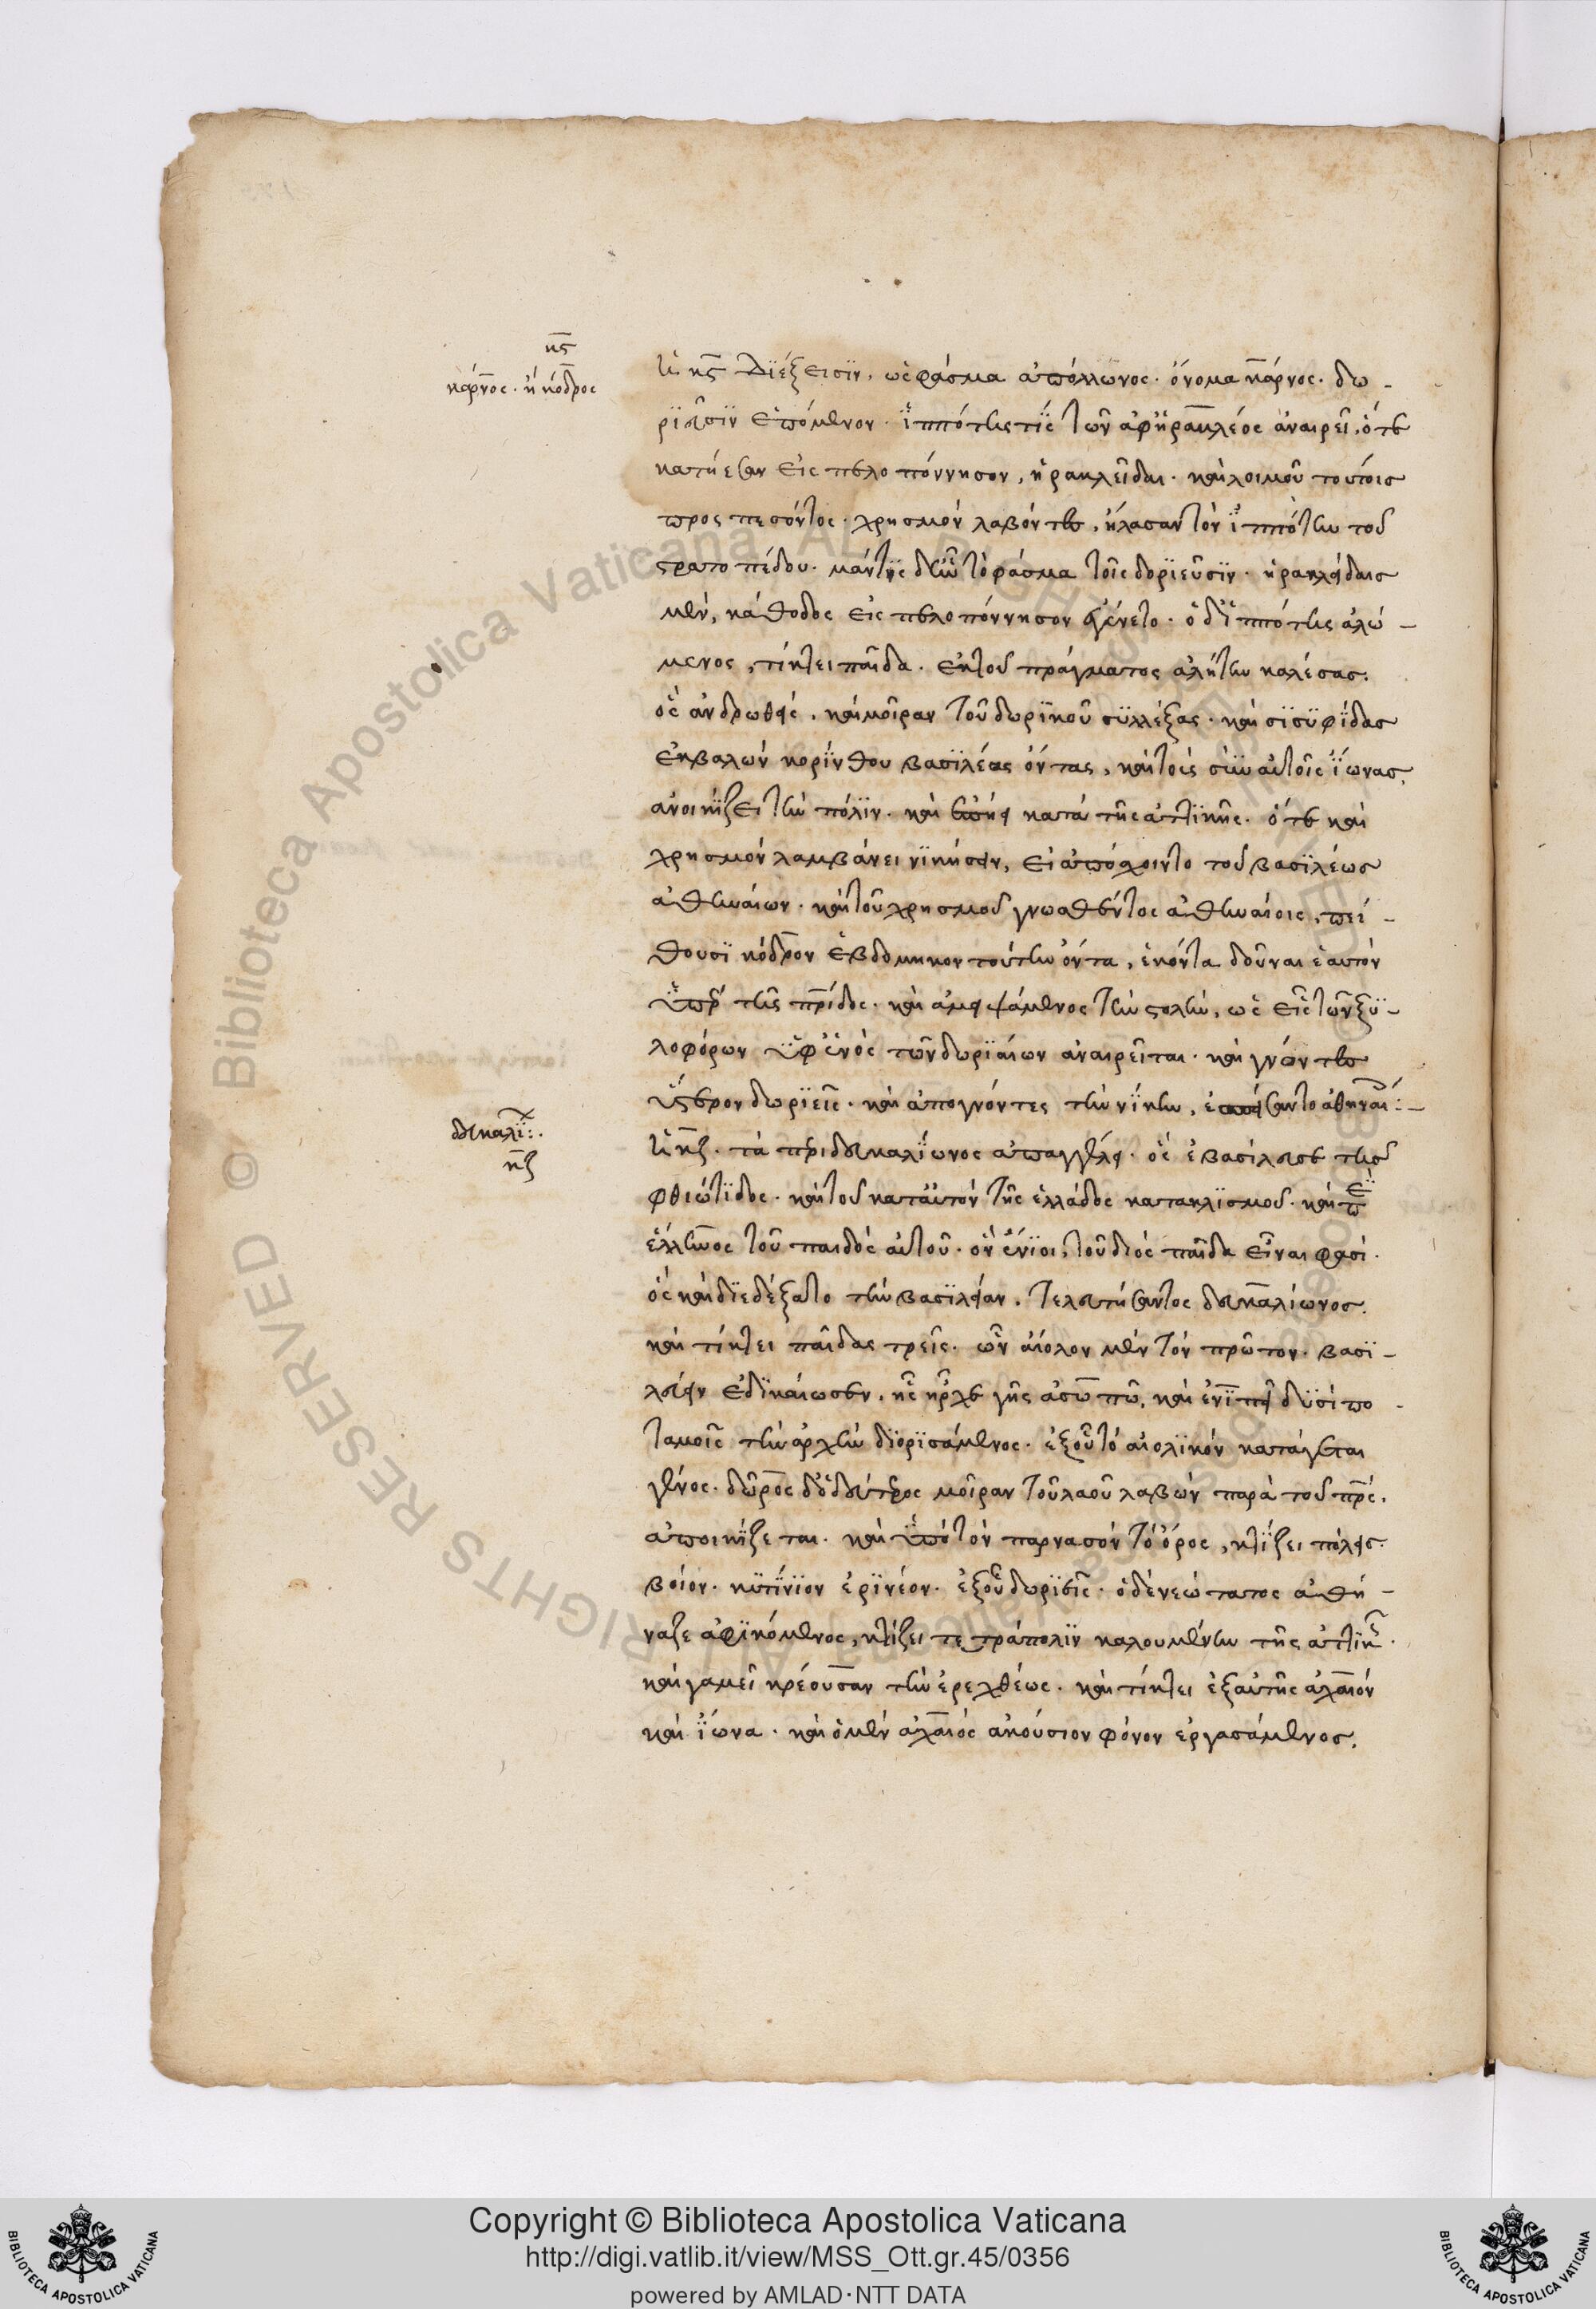 κϛ
κάρνος· ἢ κόδρος
Ἡ κϛ διέξεισιν, ὡς φάσμα ἀπόλλωνος· ὄνομα κάρνος· δω-
ριεῦσιν ἑπόμενον· ἱππότης τὶς τῶν ἀφ' ἡρακλέος ἀναιρεῖ, ὅτε
κατήεσαν εἰς πελοπόννησον, ἡρακλεῖδαι· καὶ λοιμοῦ τούτοις
προσπεσόντος· χρησμὸν λαβόντες, ἤλασαν τὸν ἱππότην τοῦ
στρατοπέδου· μάντις δ' ἦν τὸ φάσμα τοῖς δοριεῦσιν· ἡρακλείδαις
μὲν, κάθοδος εἰς πελοπόννησον ἐγένετο· ὁ δ' ἱππότης ἀλώ-
μενος, τίκτει παῖδα· ἐκ τοῦ πράγματος ἀλήτην καλέσας·
ὃς ἀνδρωθεὶς, καὶ μοῖραν τοῦ δωρικοῦ συλλέξας· καὶ σισυφίδας
ἐκβαλὼν κορίνθου βασιλέας ὄντας, καὶ τοὺς σὺν αὐτοῖς ἴωνας,
ἀνοικίζει τὴν πόλιν· καὶ ἐπῄει κατὰ τῆς ἀττικῆς· ὅτε καὶ
χρησμὸν λαμβάνει νικήσειν, εἰ ἀπόσχοιντο τοῦ βασιλέως
ἀθηναίων· καὶ τοῦ χρησμοῦ γνωσθέντος ἀθηναίοις, πεί-
θουσι κόδρον ἑβδομηκοντούτην ὄντα, ἑκόντα δοῦναι ἑαυτὸν
ὑπὲρ τῆς πρίδος· καὶ ἀμειψάμενος τὴν στολὴν, ὡς εἷς τῶν ξυ-
λοφόρων ὑφ' ἑνὸς τῶν δωριαίων ἀναιρεῖται· καὶ γνόντες
ὕστερον δωριεῖς· καὶ ἀπογνόντες τὴν νίκην, ἐσπείσαντο ἀθηναί:-
δευκαλί:·
κζ
Ἡ κζ· τὰ περὶ δευκαλίωνος ἀπαγγέλλει· ὃς ἐβασίλευσε τῆς
φθιώτιδος· καὶ τοῦ κατ' αὐτὸν τῆς ἑλλάδος κατακλισμοῦ· καὶ περὶ
ἕλληνος τοῦ παιδὸς αὐτοῦ· ὃν ἔνιοι, τοῦ διὸς παῖδα εἶναι φασί·
ὃς καὶ διεδέξατο τὴν βασιλείαν, τελευτήσαντος δευκαλίωνος,
καὶ τίκτει παῖδας τρεῖς· ὧν αἴολον μὲν τὸν πρῶτον· βασι-
λεύειν ἐδικαίωσεν, ἧς ἦρχε γῆς ἀσωπῷ, καὶ ἐνιπεῖ δυσὶ πο-
ταμοῖς τὴν ἀρχὴν διορισάμενος· ἐξ οὗ τὸ αἰολικὸν κατάγεται
γένος· δῶρος δ' ὁ δεύτερος μοῖραν τοῦ λαοῦ λαβὼν παρὰ τοῦ πρς,
ἀποικίζεται· καὶ ὑπὸ τὸν παρνασὸν τὸ ὄρος, κτίζει πόλεις·
βοῖον· κυτίνιον ἐρινέον· ἐξ οὗ δωριεῖς· ὁ δὲ νεώτατος ἀθή-
ναζε ἀφικόμενος, κτίζει τετράπολιν καλουμένην τῆς ἀττικῆς·
καὶ γαμεῖ κρέουσαν τὴν ἐρεχθέως· καὶ τίκτει ἐξ αὐτῆς ἀχαιὸν
καὶ ἴωνα· καὶ ὁ μὲν ἀχαιὸς ἀκούσιον φόνον ἐργασάμενος,
Copyright © Biblioteca Apostolica Vaticana
http://digi.vatlib.it/view/MSS_Ott.gr.45/0356
powered by AMLAD·NTT DATA
BIBLIOTECA APOSTOLICA VATICANA
BIBLIOTECA APOSTOLICA VATICANA